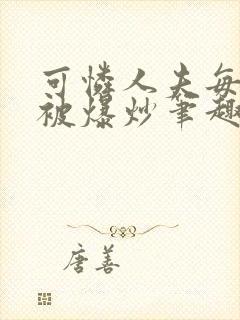 可怜人夫每
被爆炒笔趣
唐善